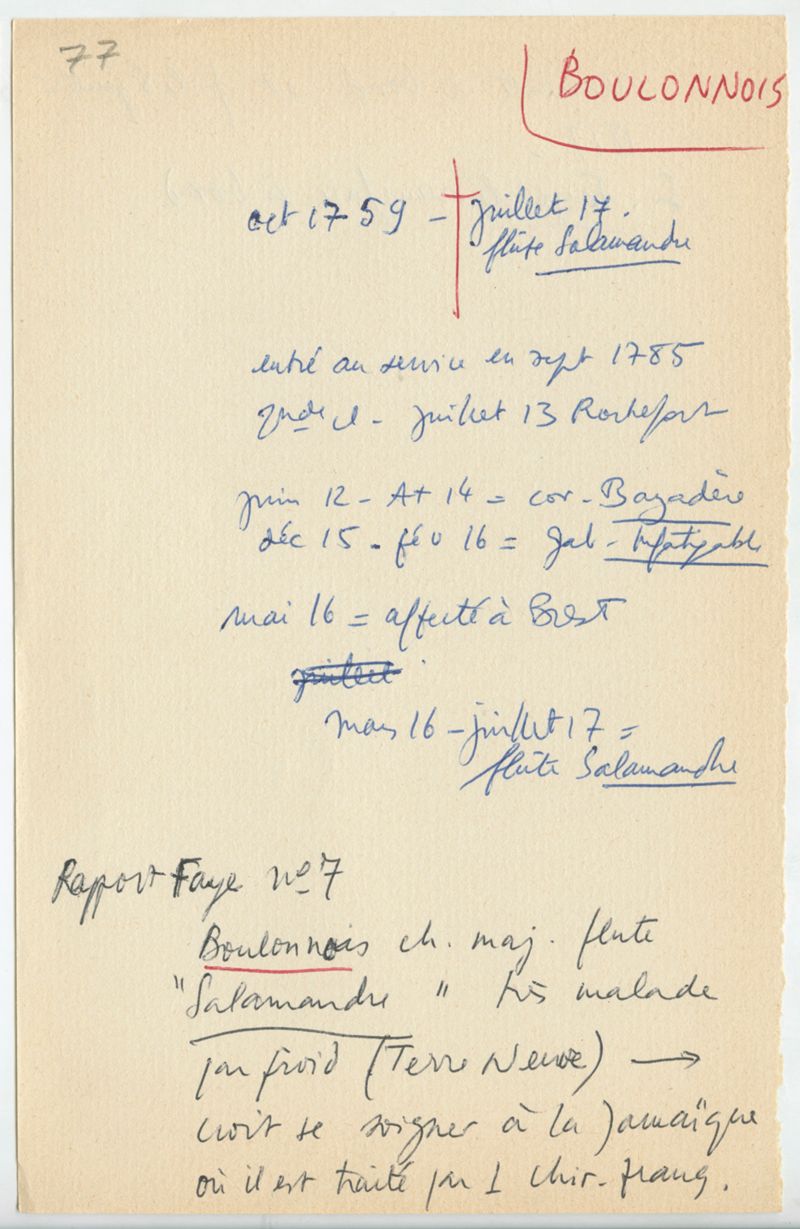 77
BOULONNOIS
oct 1759 - † juillet 17.
flûte Salamandre
entré au service en sept 1785
2nde cl - juillet 13 Rochefort
juin 12 - At 14 = cor - Bayadère
déc 15 - fév 16 = gab - Infatigable
mai 16 = affecté à Brest
juillet
mars 16 - juillet 17 =
flûte Salamandre
Rapport Faye no 7
Boulonnois ch. maj. flute
"Salamandre" très malade
par froid (Terre Neuve) →
croit se soigner à la Jamaïque
où il est traité par 1 chir. franç.